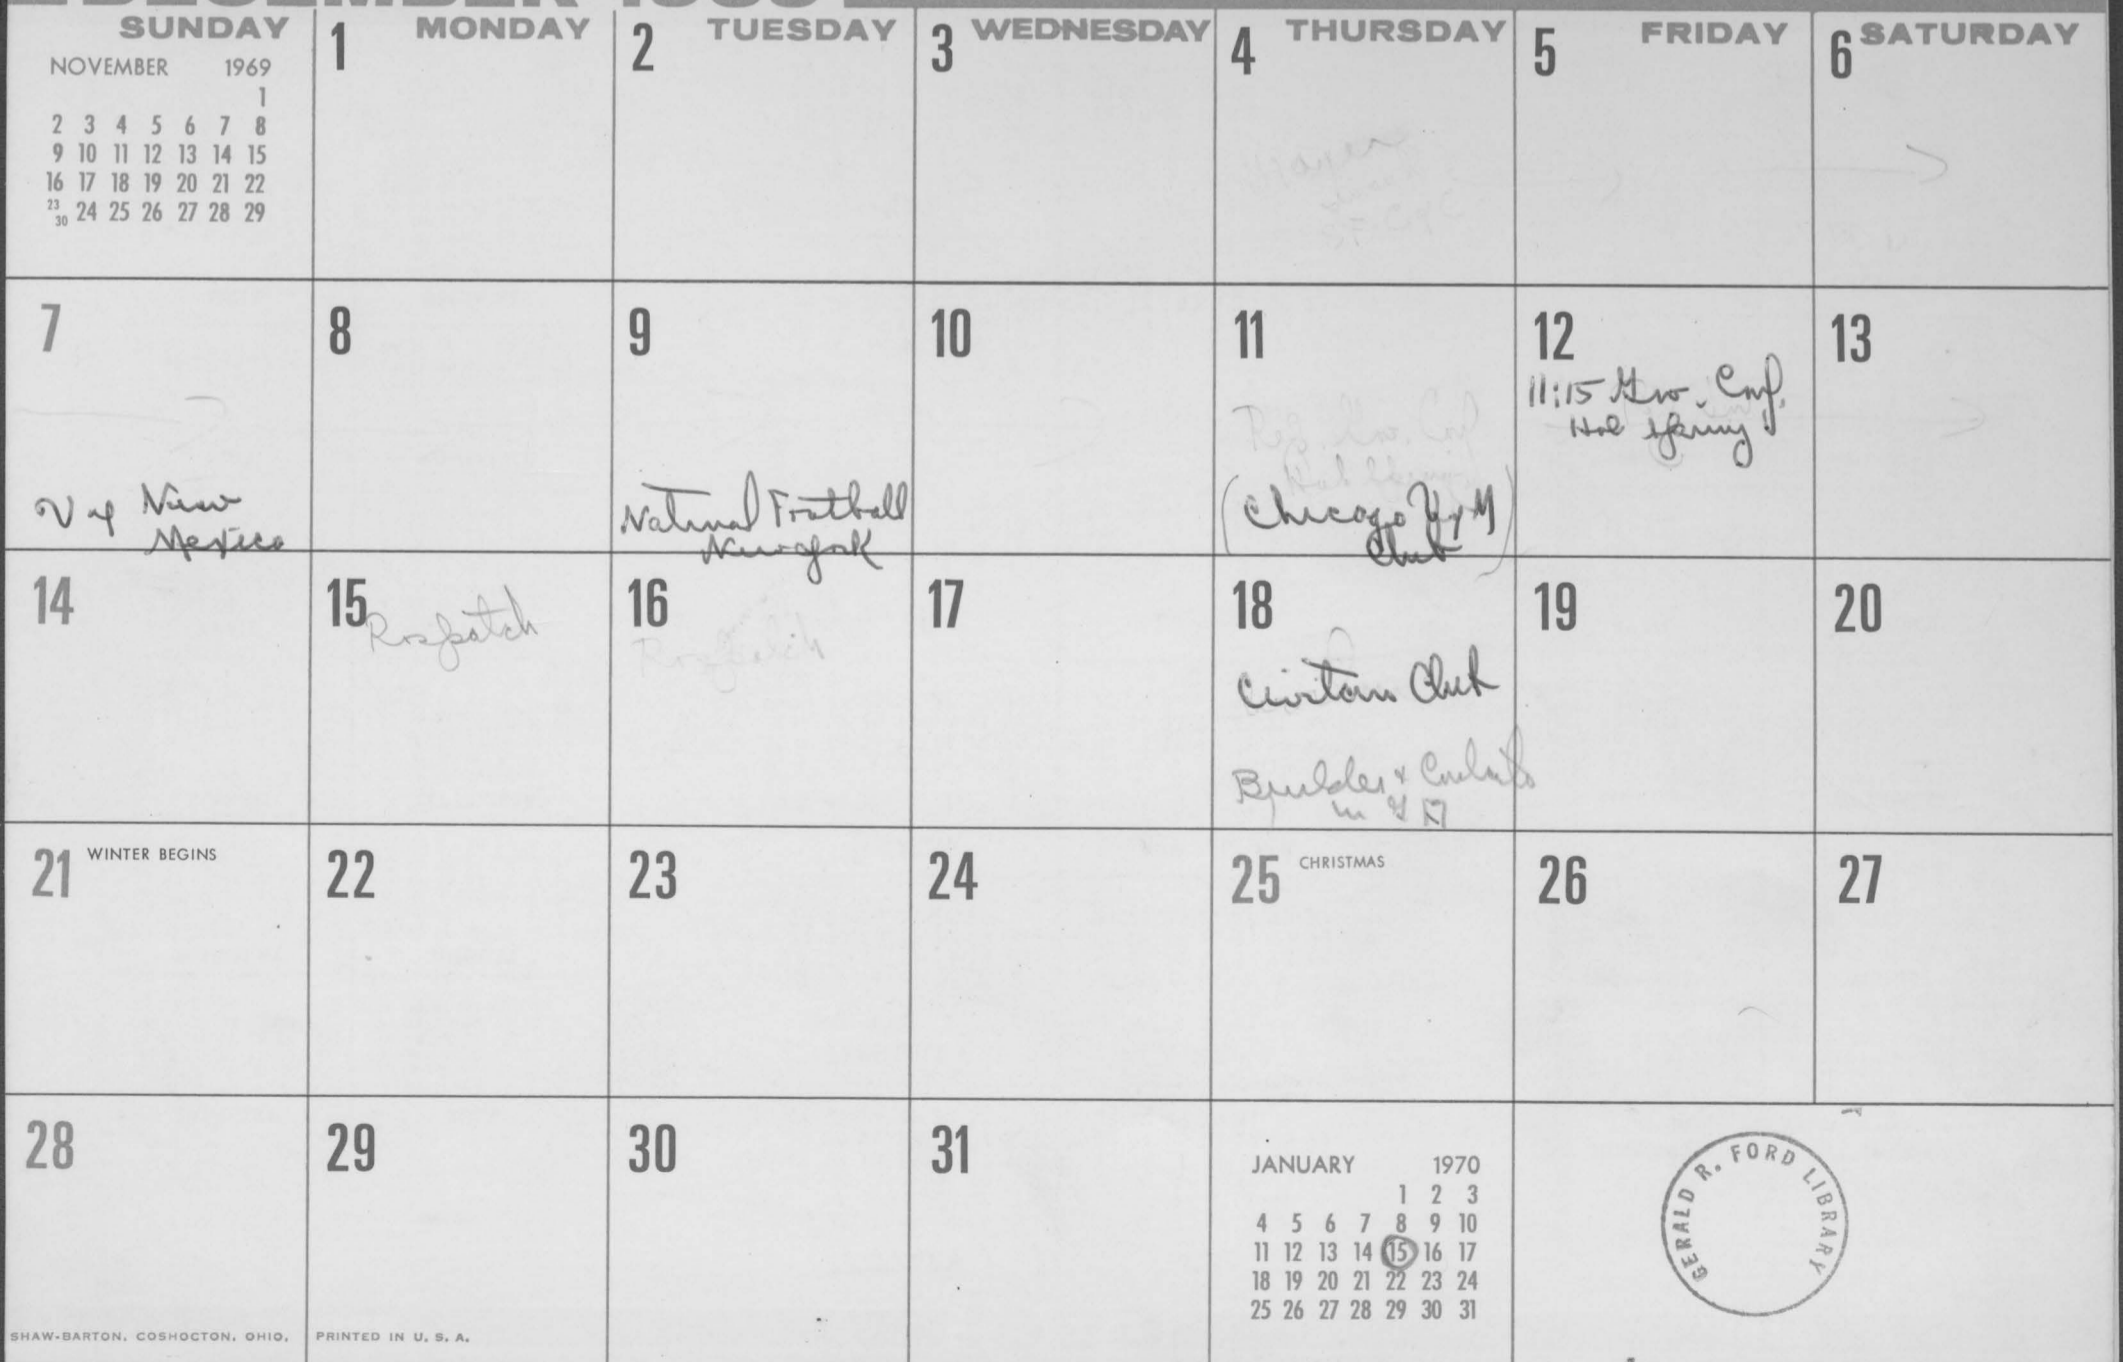 DECEMBER 1969
SUNDAY MONDAY TUESDAY WEDNESDAY THURSDAY FRIDAY SATURDAY
NOVEMBER 1969
1
2 3 4 5 6 7 8
9 10 11 12 13 14 15
16 17 18 19 20 21 22
23 30 24 25 26 27 28 29
1
2
3
4
5
6
7
U of New
Mexico
8
9
National Football
New York
10
11
(Chicago
Club)
12
11:15 Gov. Conf.
Hot Spring
13
14
15
Rospatch
16
Rospatch
17
18
Civitan Club
Builder &
in G R
19
20
21 WINTER BEGINS
22
23
24
25 CHRISTMAS
26
27
28
29
30
31
JANUARY 1970
1 2 3
4 5 6 7 8 9 10
11 12 13 14 15 16 17
18 19 20 21 22 23 24
25 26 27 28 29 30 31
GERALD R. FORD LIBRARY
SHAW-BARTON, COSHOCTON, OHIO. PRINTED IN U. S. A.